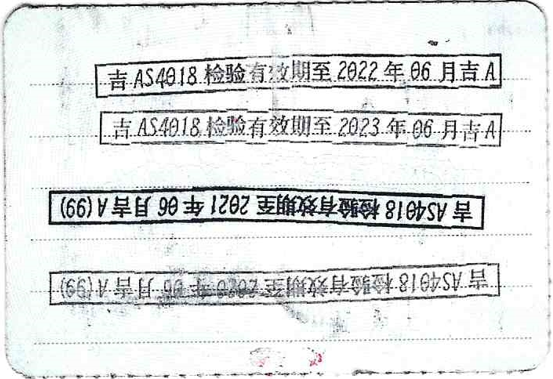 吉AS4018检验有效期至2022年06月吉A
吉AS4018检验有效期至2023年06月吉A
吉AS4018检验有效期至2021年06月吉A(99)
吉AS4018检验有效期至2020年06月吉A(99)